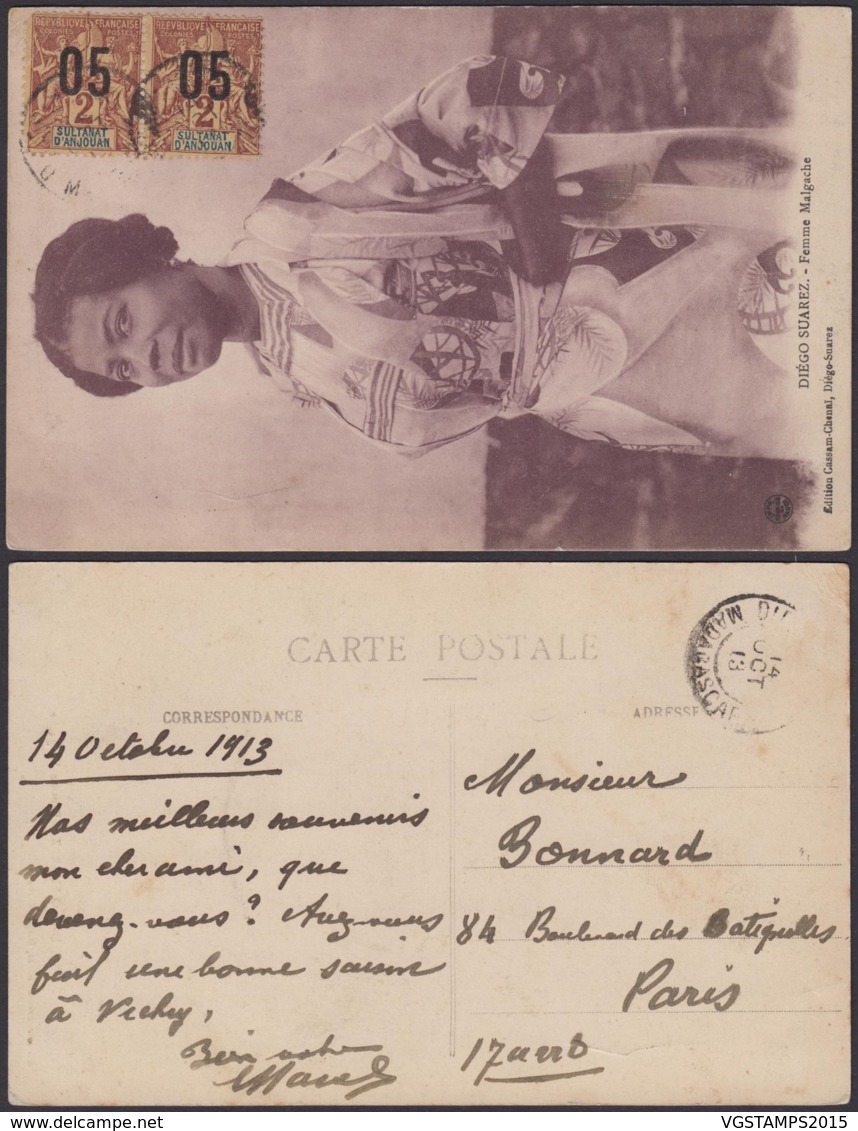 RÉPUBLIQUE FRANÇAISE
COLONIES POSTES
05
2
SULTANAT
D'ANJOUAN
RÉPUBLIQUE FRANÇAISE
COLONIES POSTES
05
2
SULTANAT
D'ANJOUAN
DIÉGO SUAREZ. - Femme Malgache
Edition Cassam-Chenaï, Diégo-Suarez
CARTE POSTALE
MADAGASCAR
14
OCT
13
CORRESPONDANCE
ADRESSE
14 Octobre 1913
Nos meilleurs souvenirs
mon cher ami, que
devenez-vous? Avez-vous
fait une bonne saison
à Vichy,
Bien votre
Marcel
Monsieur
Bonnard
84 Boulevard des Batignolles
Paris
VGSTAMPS2015